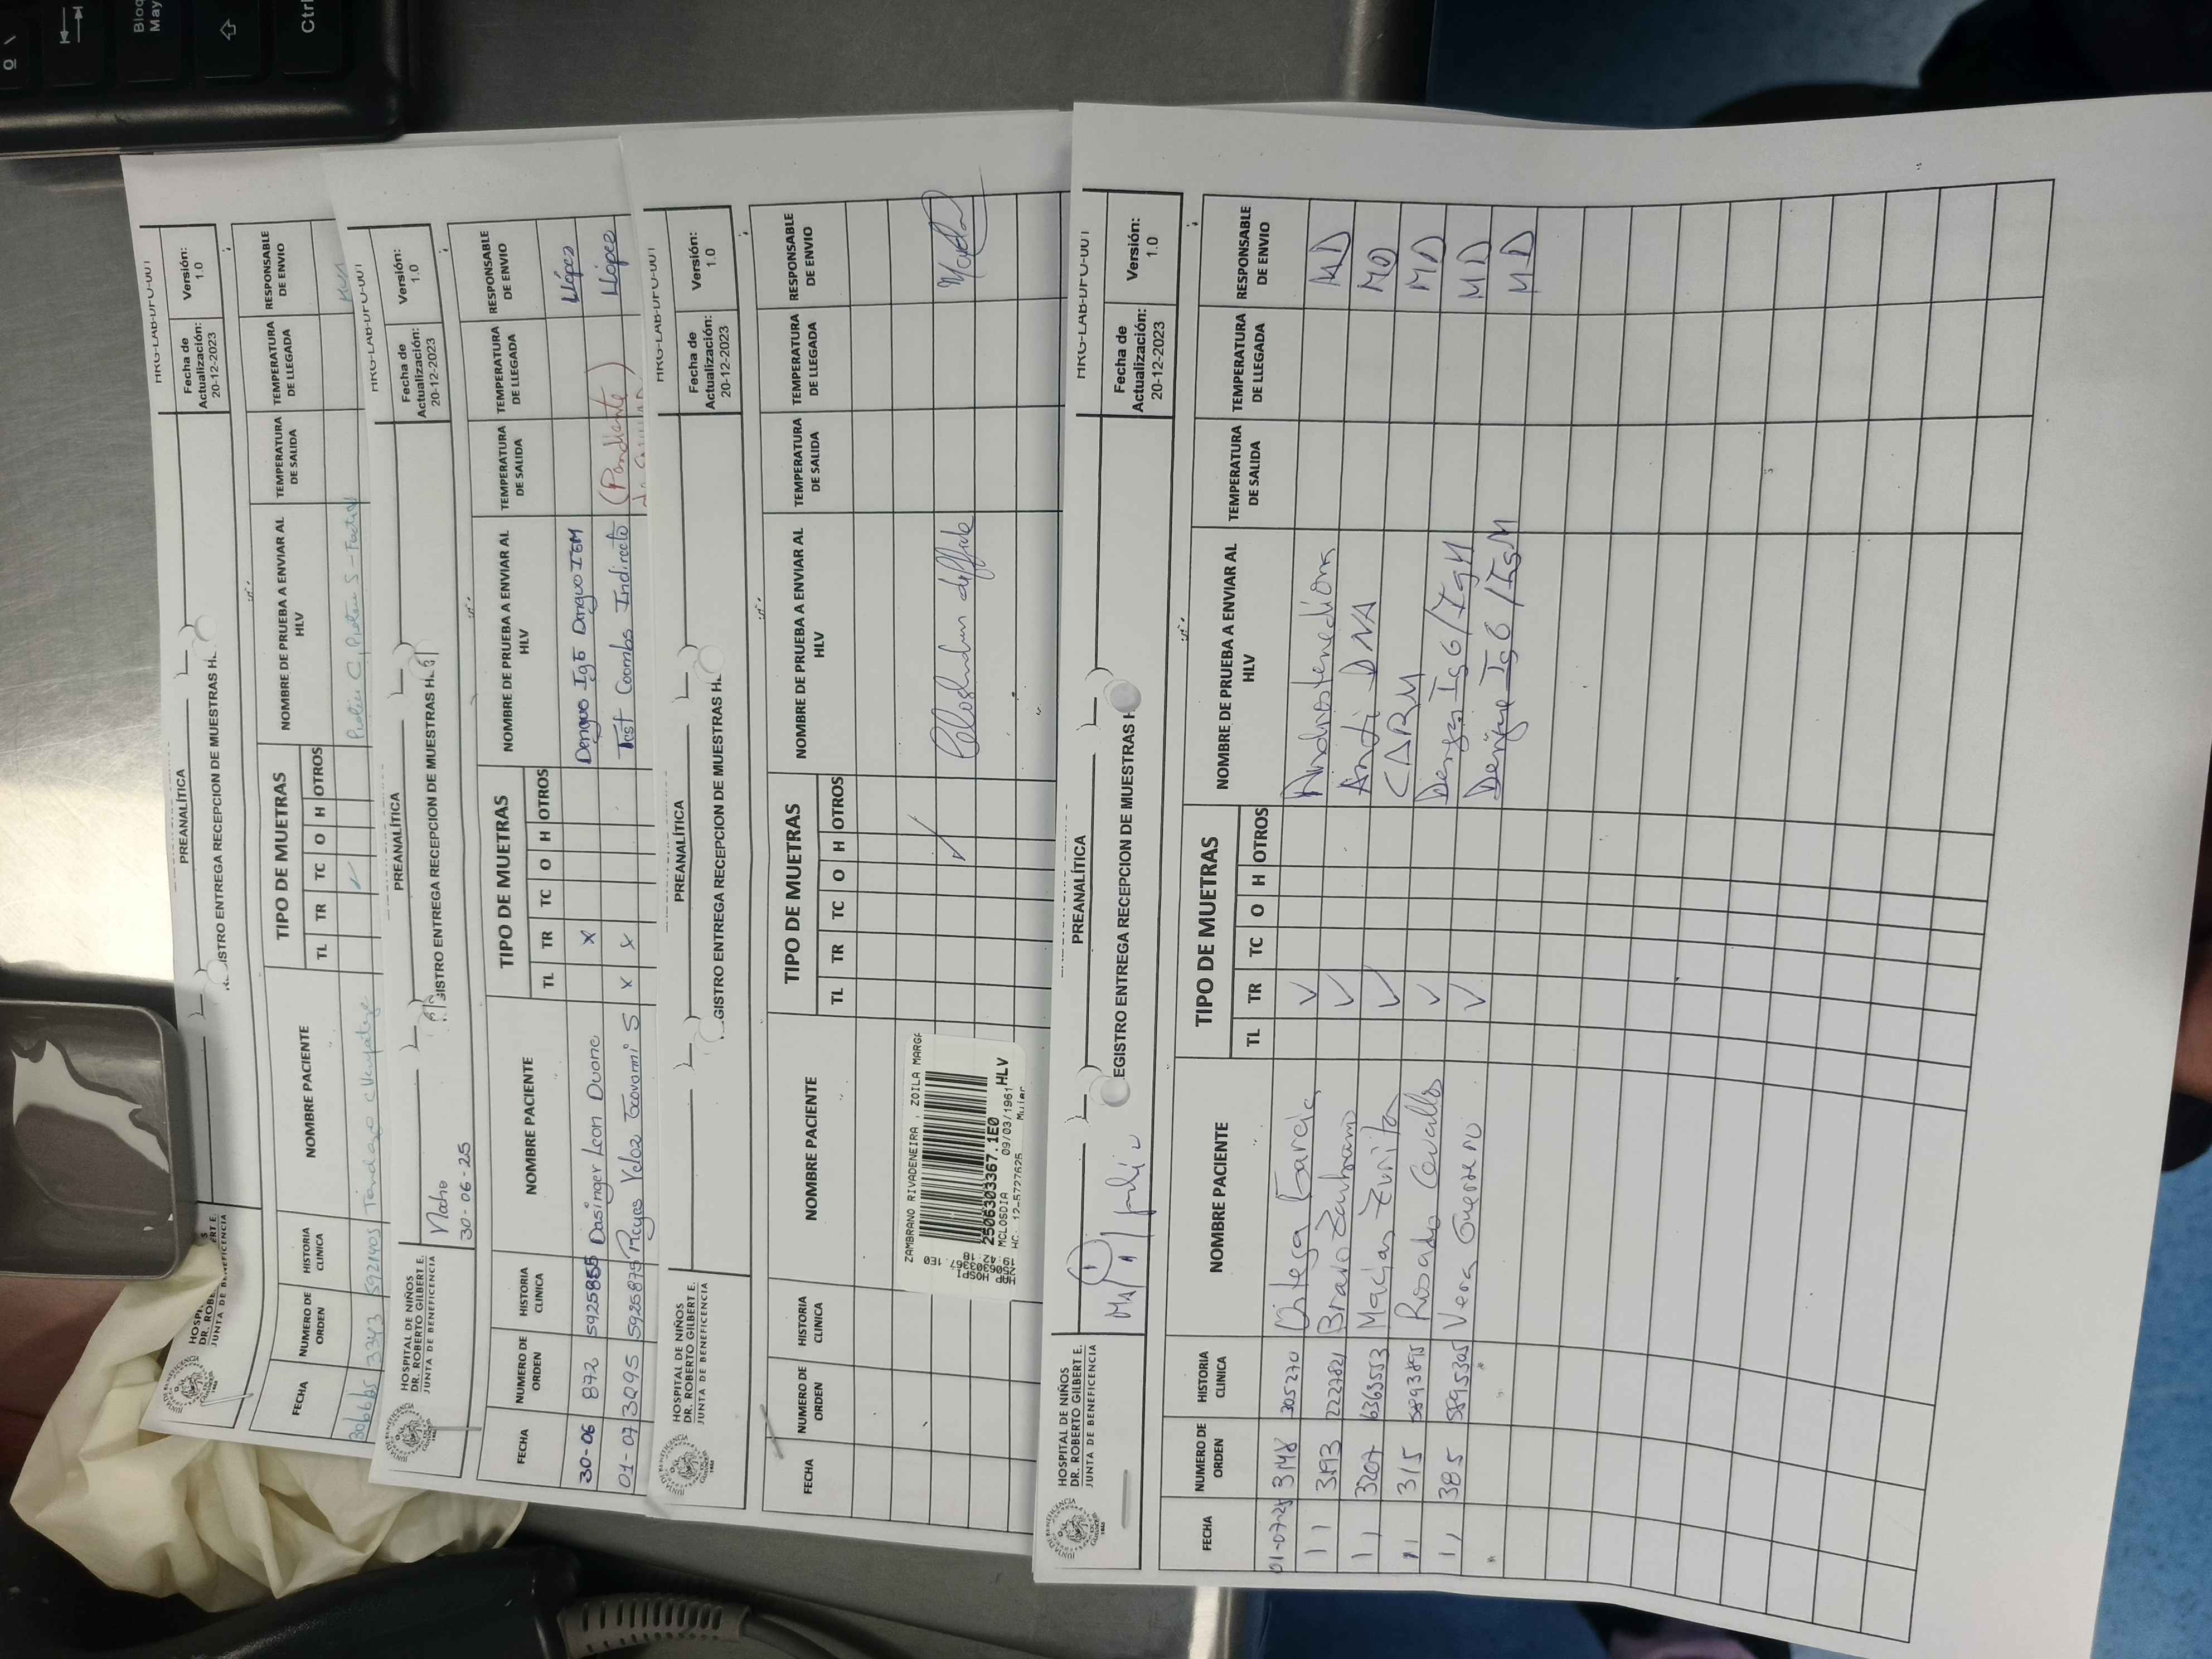 HRG-LAB-DFO-001
PREANALÍTICA
Fecha de Actualización: 20-12-2023
Versión: 1.0
HOSPI
DR. ROBE
JUNTA DE BENEFICENCIA
ISTRO ENTREGA RECEPCION DE MUESTRAS H
FECHA NUMERO DE ORDEN HISTORIA CLINICA NOMBRE PACIENTE TIPO DE MUETRAS NOMBRE DE PRUEBA A ENVIAR AL HLV TEMPERATURA DE SALIDA TEMPERATURA DE LLEGADA RESPONSABLE DE ENVIO
TL TR TC O H OTROS
3343 ✓
HRG-LAB-DFO-001
HOSPITAL DE NIÑOS
DR. ROBERTO GILBERT E.
JUNTA DE BENEFICENCIA
PREANALÍTICA
Fecha de Actualización: 20-12-2023
Versión: 1.0
Noche
30-06-25
GISTRO ENTREGA RECEPCION DE MUESTRAS H
FECHA NUMERO DE ORDEN HISTORIA CLINICA NOMBRE PACIENTE TIPO DE MUETRAS NOMBRE DE PRUEBA A ENVIAR AL HLV TEMPERATURA DE SALIDA TEMPERATURA DE LLEGADA RESPONSABLE DE ENVIO
TL TR TC O H OTROS
30-06 872 5925855 Dasinger Leon Duone x Dengue IgG Dengue IGM LLópez
01-07 3095 5925875 Reyes Velez S x x Test Coombs Indirecto (Pendiente) LLópez
HRG-LAB-DFO-001
HOSPITAL DE NIÑOS
DR. ROBERTO GILBERT E.
JUNTA DE BENEFICENCIA
PREANALÍTICA
Fecha de Actualización: 20-12-2023
Versión: 1.0
GISTRO ENTREGA RECEPCION DE MUESTRAS H
FECHA NUMERO DE ORDEN HISTORIA CLINICA NOMBRE PACIENTE TIPO DE MUETRAS NOMBRE DE PRUEBA A ENVIAR AL HLV TEMPERATURA DE SALIDA TEMPERATURA DE LLEGADA RESPONSABLE DE ENVIO
TL TR TC O H OTROS
ZAMBRANO RIVADENEIRA , ZOILA MARGA
2506303367.1E0
MCLOSDIA 09/03/1961 HLV
HC. 12-5727625 Mujer
✓ difficile
HRG-LAB-DFO-001
HOSPITAL DE NIÑOS
DR. ROBERTO GILBERT E.
JUNTA DE BENEFICENCIA
PREANALÍTICA
Fecha de Actualización: 20-12-2023
Versión: 1.0
EGISTRO ENTREGA RECEPCION DE MUESTRAS H
FECHA NUMERO DE ORDEN HISTORIA CLINICA NOMBRE PACIENTE TIPO DE MUETRAS NOMBRE DE PRUEBA A ENVIAR AL HLV TEMPERATURA DE SALIDA TEMPERATURA DE LLEGADA RESPONSABLE DE ENVIO
TL TR TC O H OTROS
01-07-25 3148 305270 Ortega Garcia ✓ Androstenediona MD
11 3193 Bravo Zambrano ✓ Anti DNA MD
11 3207 6363553 Macias Zurita ✓ CARM MD
11 315 Rosado Cevallos ✓ Dengue IgG/IgM MD
11 385 5895305 Vera Guerrero ✓ Dengue IgG/IgM MD
Bloq May
Ctrl